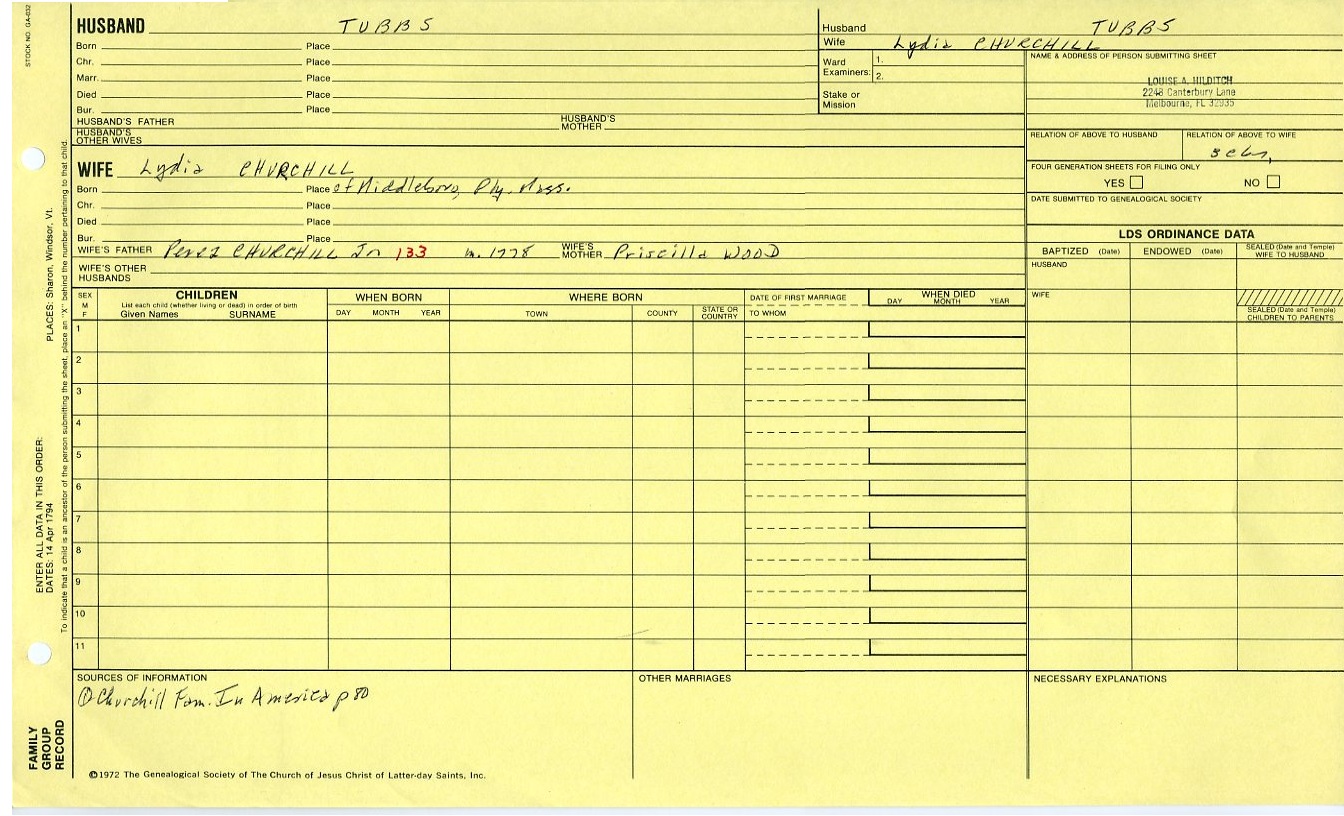 STOCK NO. GA-032
HUSBAND TUBBS
Born Place
Chr. Place
Marr. Place
Died Place
Bur. Place
HUSBAND'S FATHER HUSBAND'S MOTHER
HUSBAND'S OTHER WIVES
Husband TUBBS
Wife Lydia CHURCHILL
Ward Examiners: 1.
2.
Stake or Mission
NAME & ADDRESS OF PERSON SUBMITTING SHEET
LOUISE A. HILDITCH
2248 Canterbury Lane
Melbourne, FL 32935
RELATION OF ABOVE TO HUSBAND RELATION OF ABOVE TO WIFE
FOUR GENERATION SHEETS FOR FILING ONLY
YES NO
DATE SUBMITTED TO GENEALOGICAL SOCIETY
WIFE Lydia CHURCHILL
Born Place of Middleboro, Ply. Mass.
Chr. Place
Died Place
Bur. Place
WIFE'S FATHER Perez CHURCHILL Jn 133 m. 1778 WIFE'S MOTHER Priscilla WOOD
WIFE'S OTHER HUSBANDS
LDS ORDINANCE DATA
BAPTIZED (Date) ENDOWED (Date) SEALED (Date and Temple) WIFE TO HUSBAND
HUSBAND
WIFE
SEALED (Date and Temple) CHILDREN TO PARENTS
SEX M F
CHILDREN
List each child (whether living or dead) in order of birth
Given Names SURNAME
WHEN BORN
DAY MONTH YEAR
WHERE BORN
TOWN COUNTY STATE OR COUNTRY
DATE OF FIRST MARRIAGE
TO WHOM
WHEN DIED
DAY MONTH YEAR
1
2
3
4
5
6
7
8
9
10
11
SOURCES OF INFORMATION
① Churchill Fam. In America p 80
OTHER MARRIAGES
NECESSARY EXPLANATIONS
©1972 The Genealogical Society of The Church of Jesus Christ of Latter-day Saints, Inc.
FAMILY GROUP RECORD
ENTER ALL DATA IN THIS ORDER:
DATES: 14 Apr 1794
PLACES: Sharon, Windsor, Vt.
To indicate that a child is an ancestor of the person submitting the sheet, place an "X" behind the number pertaining to that child.